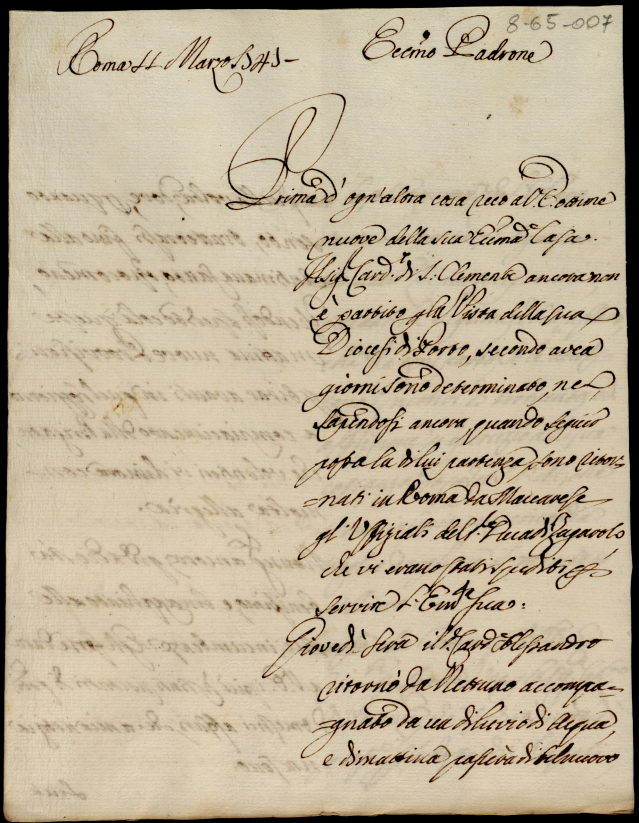 8-65-007
Roma 11 Marzo 1741 -
Ecc.mo Padrone
Prima d' ogn'altra cosa reco al E ottime
nuove della sua Ecc.ma Casa.
Il sig.r Card.le di S. Clemente ancora non
è partito p la Visita della sua
Diocesi di Porto, secondo avea
giorni sono determinato, ne
sapendosi ancora, quando seguir
possa la di lui partenza, sono ritor=
=nati in Roma da Maccarese
gl' Uffiziali del Duca di Zagarolo
che vi erano stati spediti p
servire l' Em.za sua.
Giovedì sera il Card. Alessandro
ritornò da Nettuno accompa=
=gnato da un diluvio di Acqua,
e dimattina passerà di bel nuovo